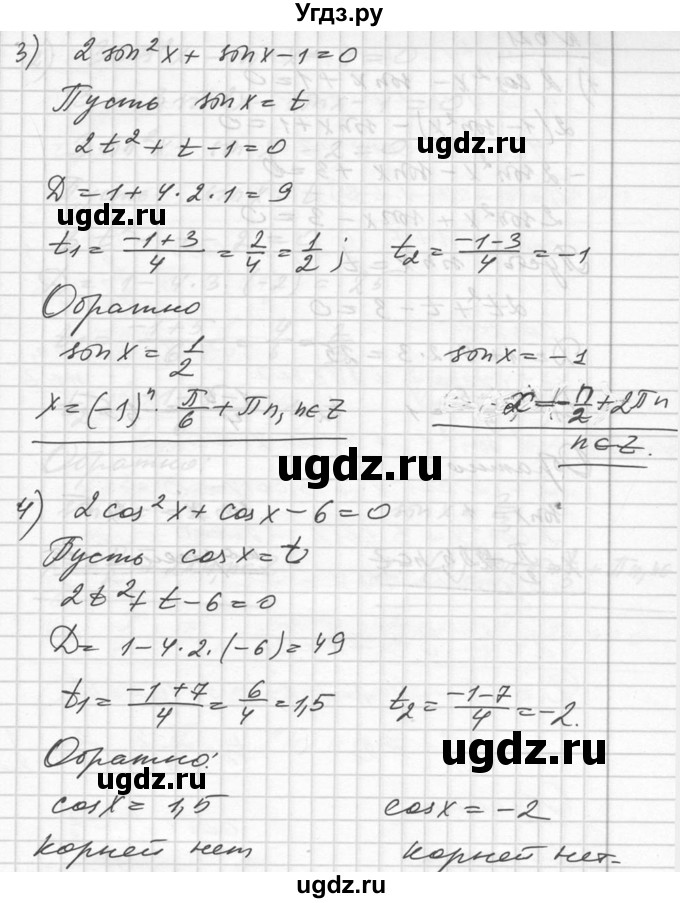 Угдз.ру
3) 2 sin²x + sinx − 1 = 0
Пусть sinx = t
2t² + t − 1 = 0
D = 1 + 4·2·1 = 9
ugdz.ru ugdz.ru
t₁ = (−1+3)/4 = 2/4 = 1/2 ; t₂ = (−1−3)/4 = −1
Обратно
sinx = 1/2 sinx = −1
x = (−1)ⁿ · π/6 + πn, n∈Z x = −π/2 + 2πn
n∈Z.
ugdz.ru ugdz.ru
4) 2cos²x + cosx − 6 = 0
Пусть cosx = t
2t² + t − 6 = 0
D = 1 − 4·2·(−6) = 49
ugdz.ru
t₁ = (−1+7)/4 = 6/4 = 1,5 t₂ = (−1−7)/4 = −2.
ugdz.ru
Обратно:
ugdz.ru
cosx = 1,5 cosx = −2
корней нет корней нет.
ugdz.ru